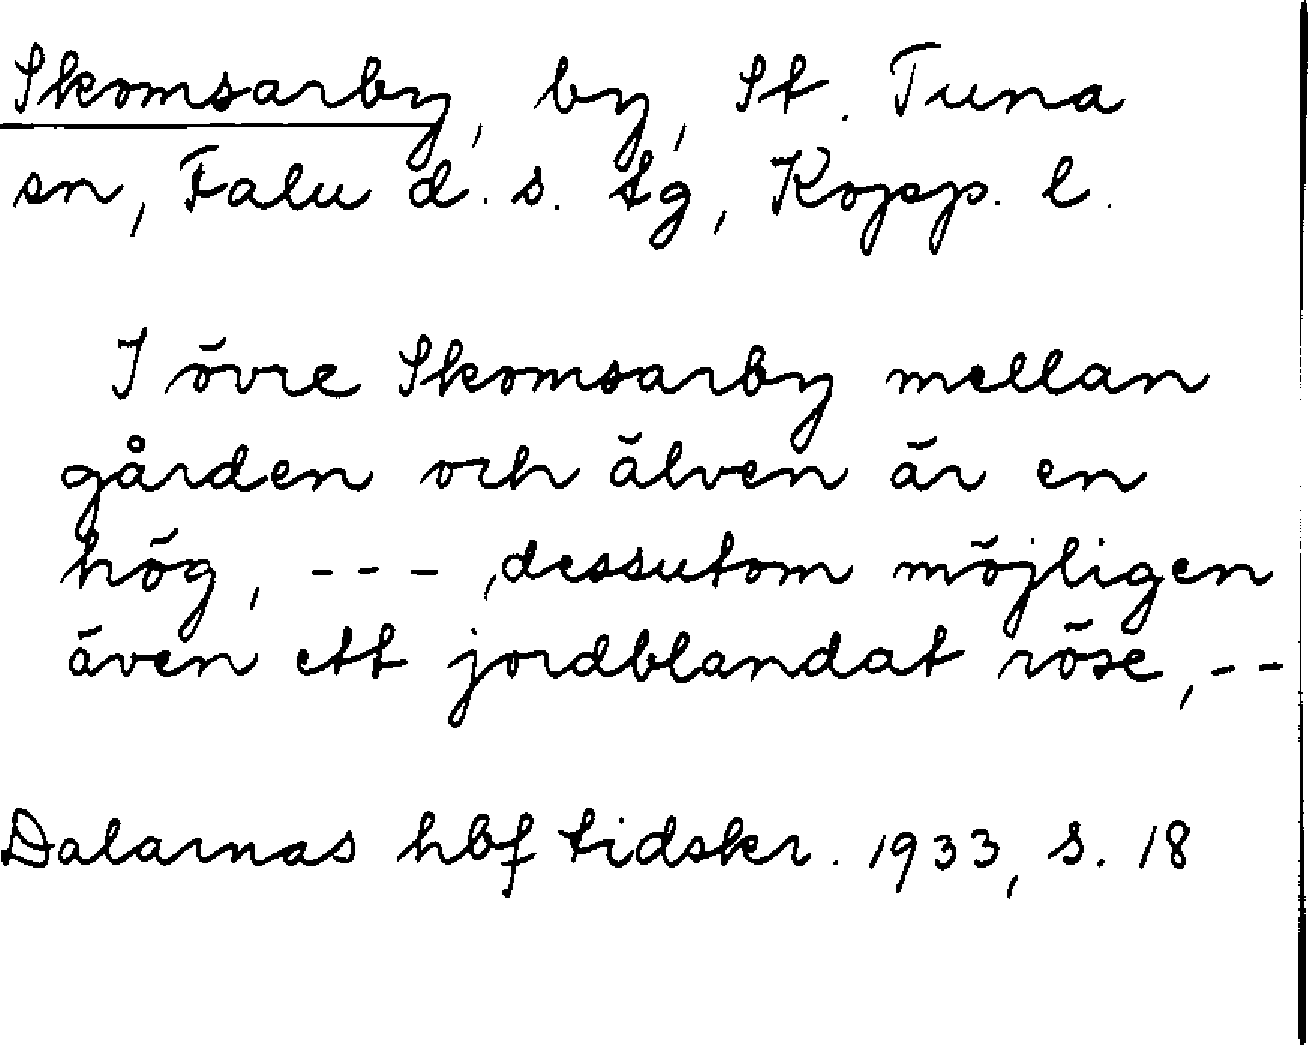 Skomsarby, by, St. Tuna
sn, Falu d. s. tg, Kopp. l.
I övre Skomsarby mellan
gården och älven är en
hög, - - - , dessutom möjligen
även ett jordblandat röse, - -
Dalarnas hbf tidskr. 1933, s. 18